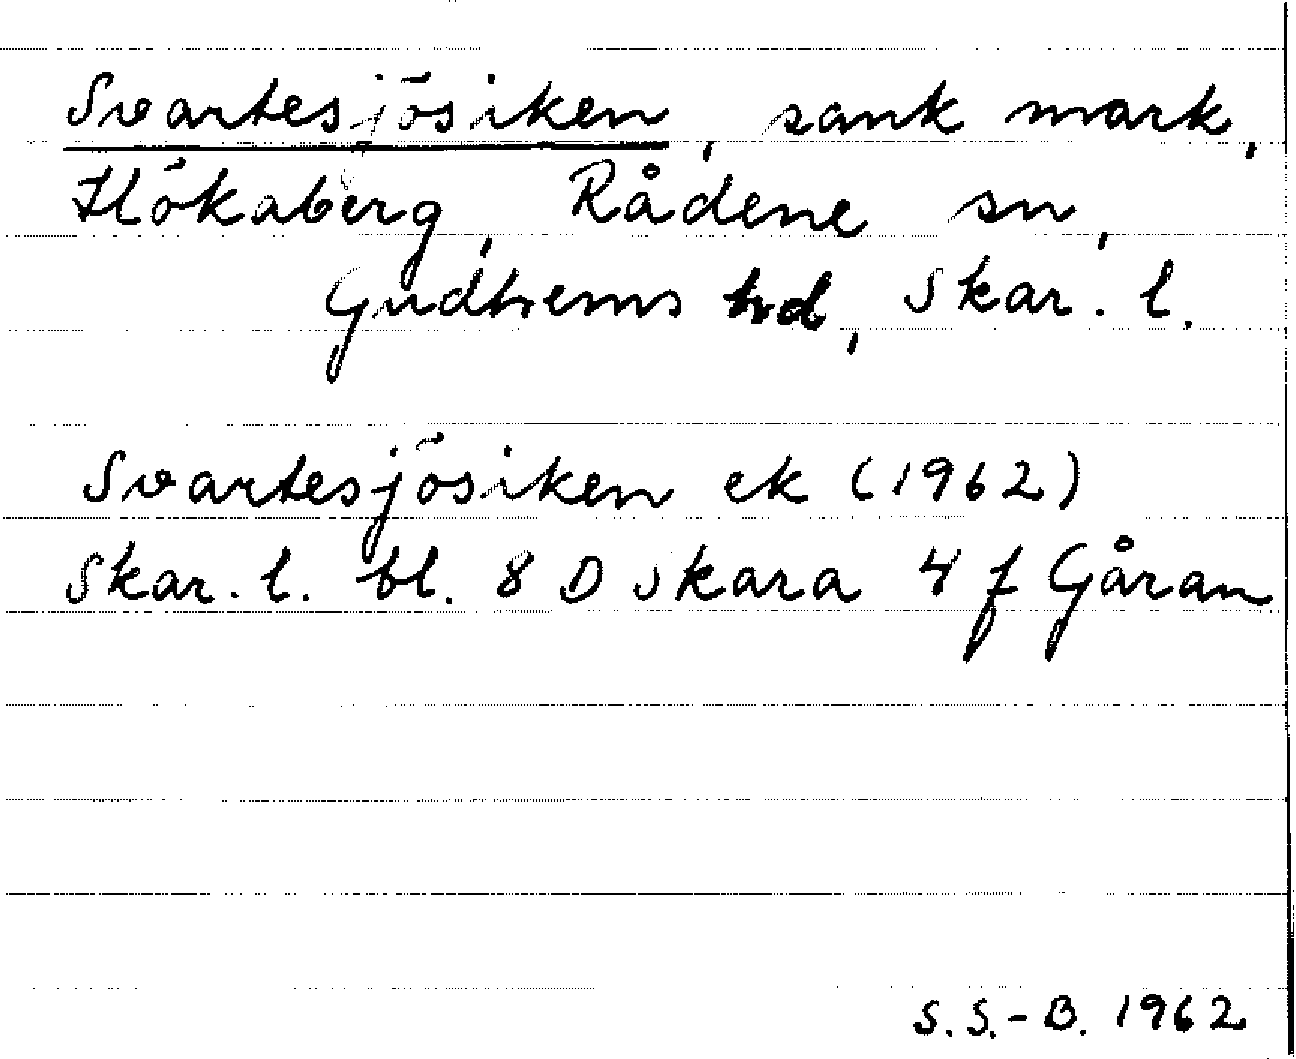 Svartesjösiken, sank mark,
Hökaberg, Rådene sn,
Gudhems hd, Skar. l.
Svartesjösiken ek (1962)
Skar. l. bl. 8 D Skara 4 f Gåran
S. S.-B. 1962